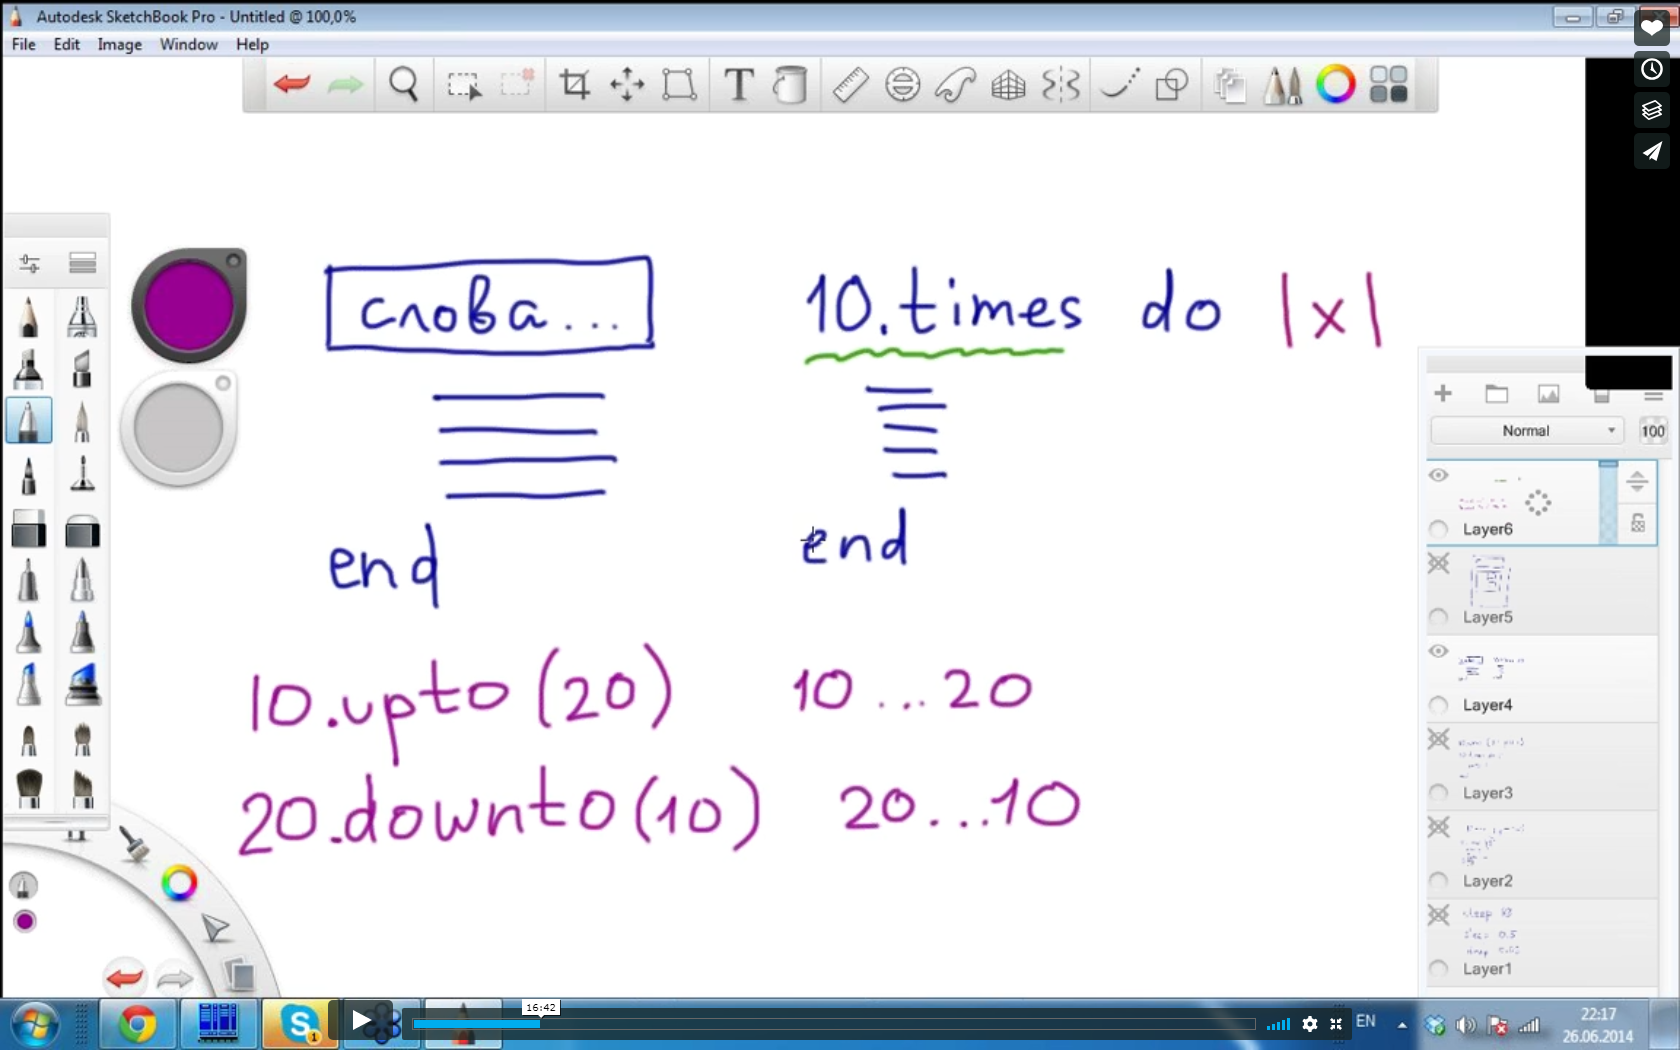 Autodesk SketchBook Pro - Untitled @ 100,0%
File Edit Image Window Help
слова... 10.times do |x|
end end
10.upto(20) 10...20
20.downto(10) 20...10
Normal 100
Layer6
Layer5
Layer4
Layer3
Layer2
Layer1
16:42
1
EN
22:17
26.06.2014